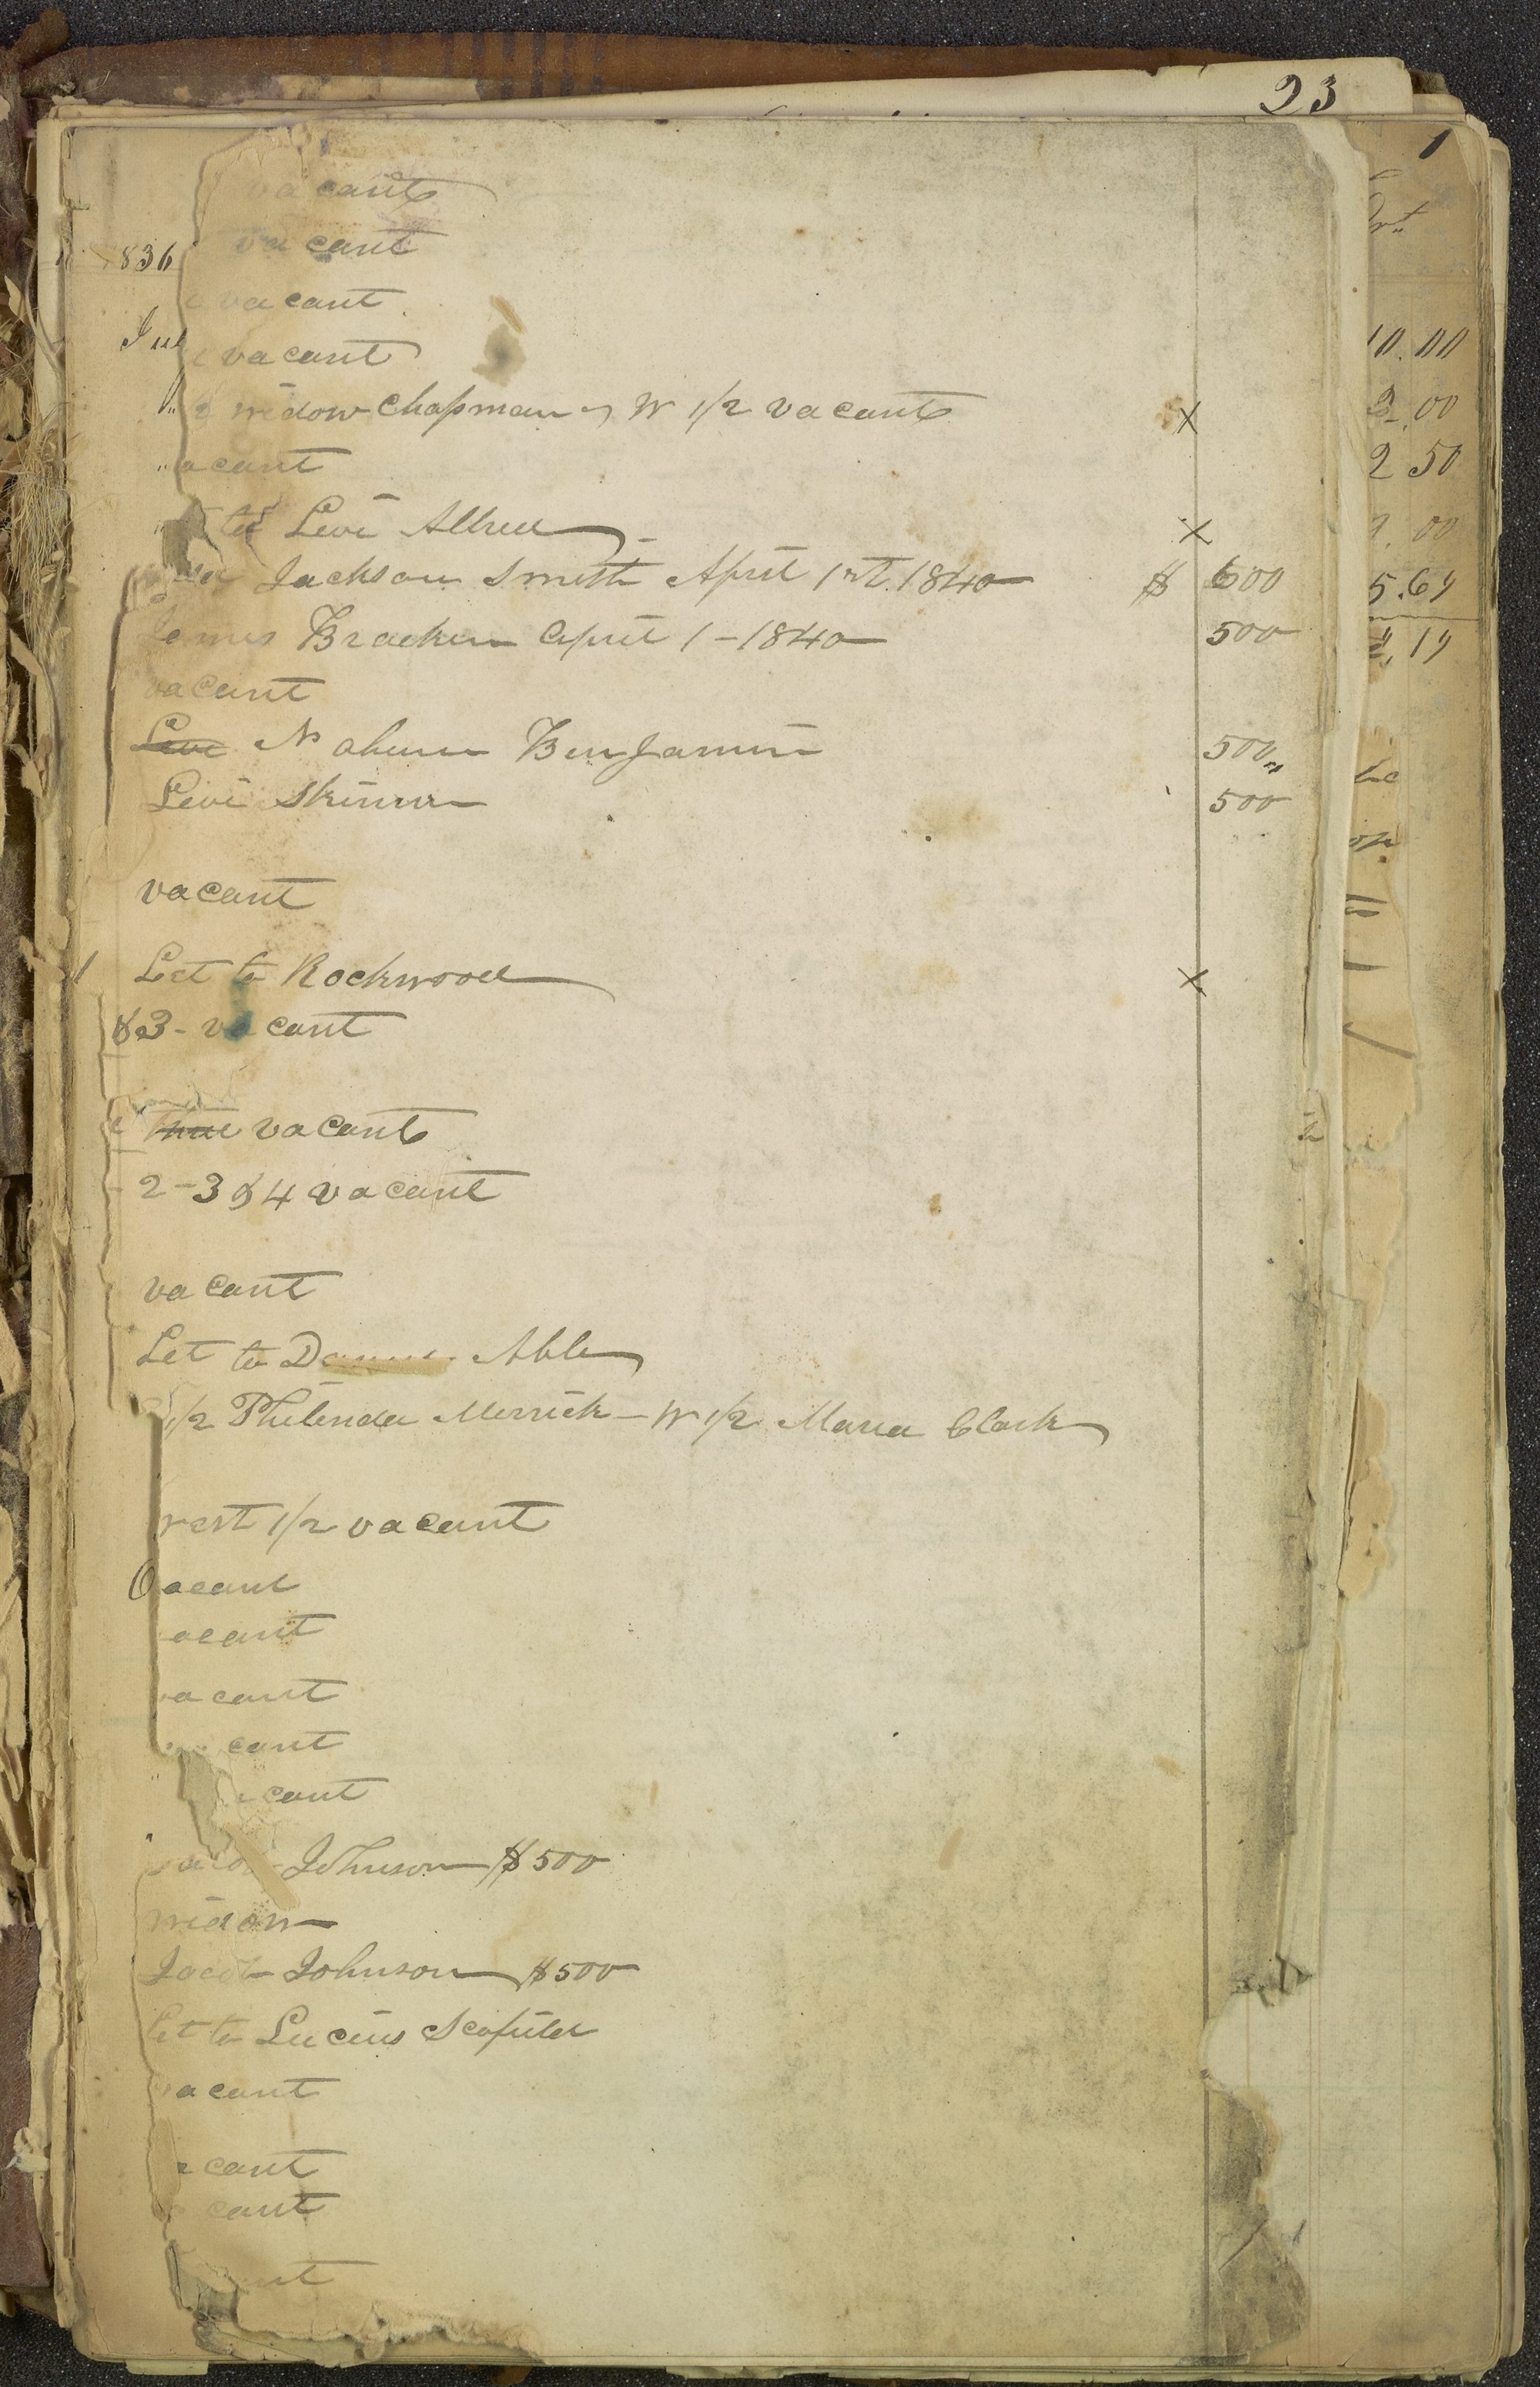 23
1
vacant
836 vacant
vacant
vacant
widow Chapman & W 1/2 vacant x
acant
to Levi Allred x
Jackson Smith April 1st 1840 $ 600
James Bracken April 1-1840 500
vacant
Levi Nahum Benjamin 500
Levi Skinner 500
vacant
1 Let to Rockwood x
&3- vacant
vacant
2-3 & 4 vacant
vacant
Let to Able
1/2 Philinda Merrick - W 1/2 Maria Clark
west 1/2 vacant
vacant
acant
vacant
cant
cant
Johnson $500
widow
Jacob Johnson $500
Let to Lucius Scofiler
acant
cant
cant
nt
10.00
3.00
2 50
00
5.69
.19